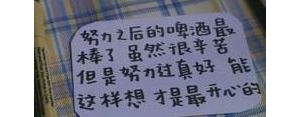 努力之后的啤酒最
棒了 虽然很辛苦
但是努力过真好 能
这样想 才是最开心的